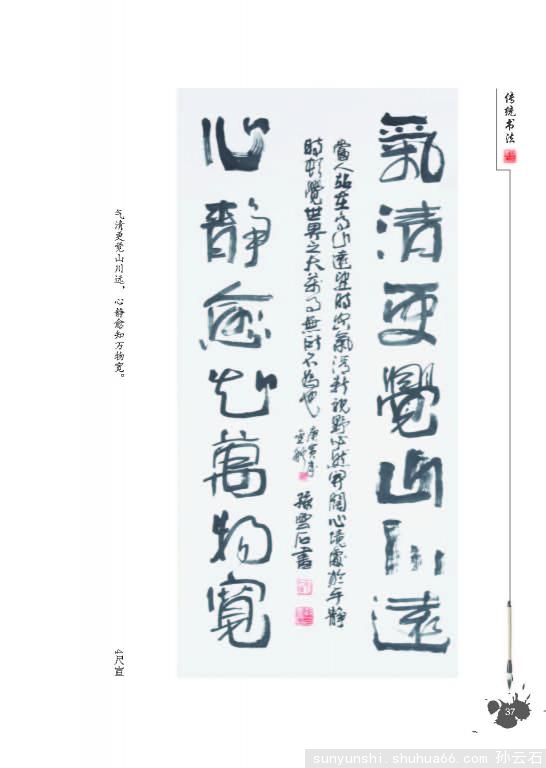 传统书法
氣清更覺山川遠
當人站在高山遠望時空氣清新視野必然開闊心境處於平靜
時頓覺世界之大萬事無所不為也
庚寅年
孫雲石書
心靜愈知萬物寬
气清更觉山川远，心静愈知万物宽。
四尺宣
37
sunyunshi.shuhua66.com 孙云石